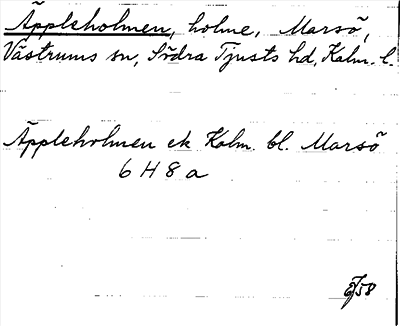 Äppleholmen, holme, Marsö,
Västrums sn, Södra Tjusts hd, Kalm. l.
Äppleholmen ek Kalm. bl. Marsö
6 H 8 a
58